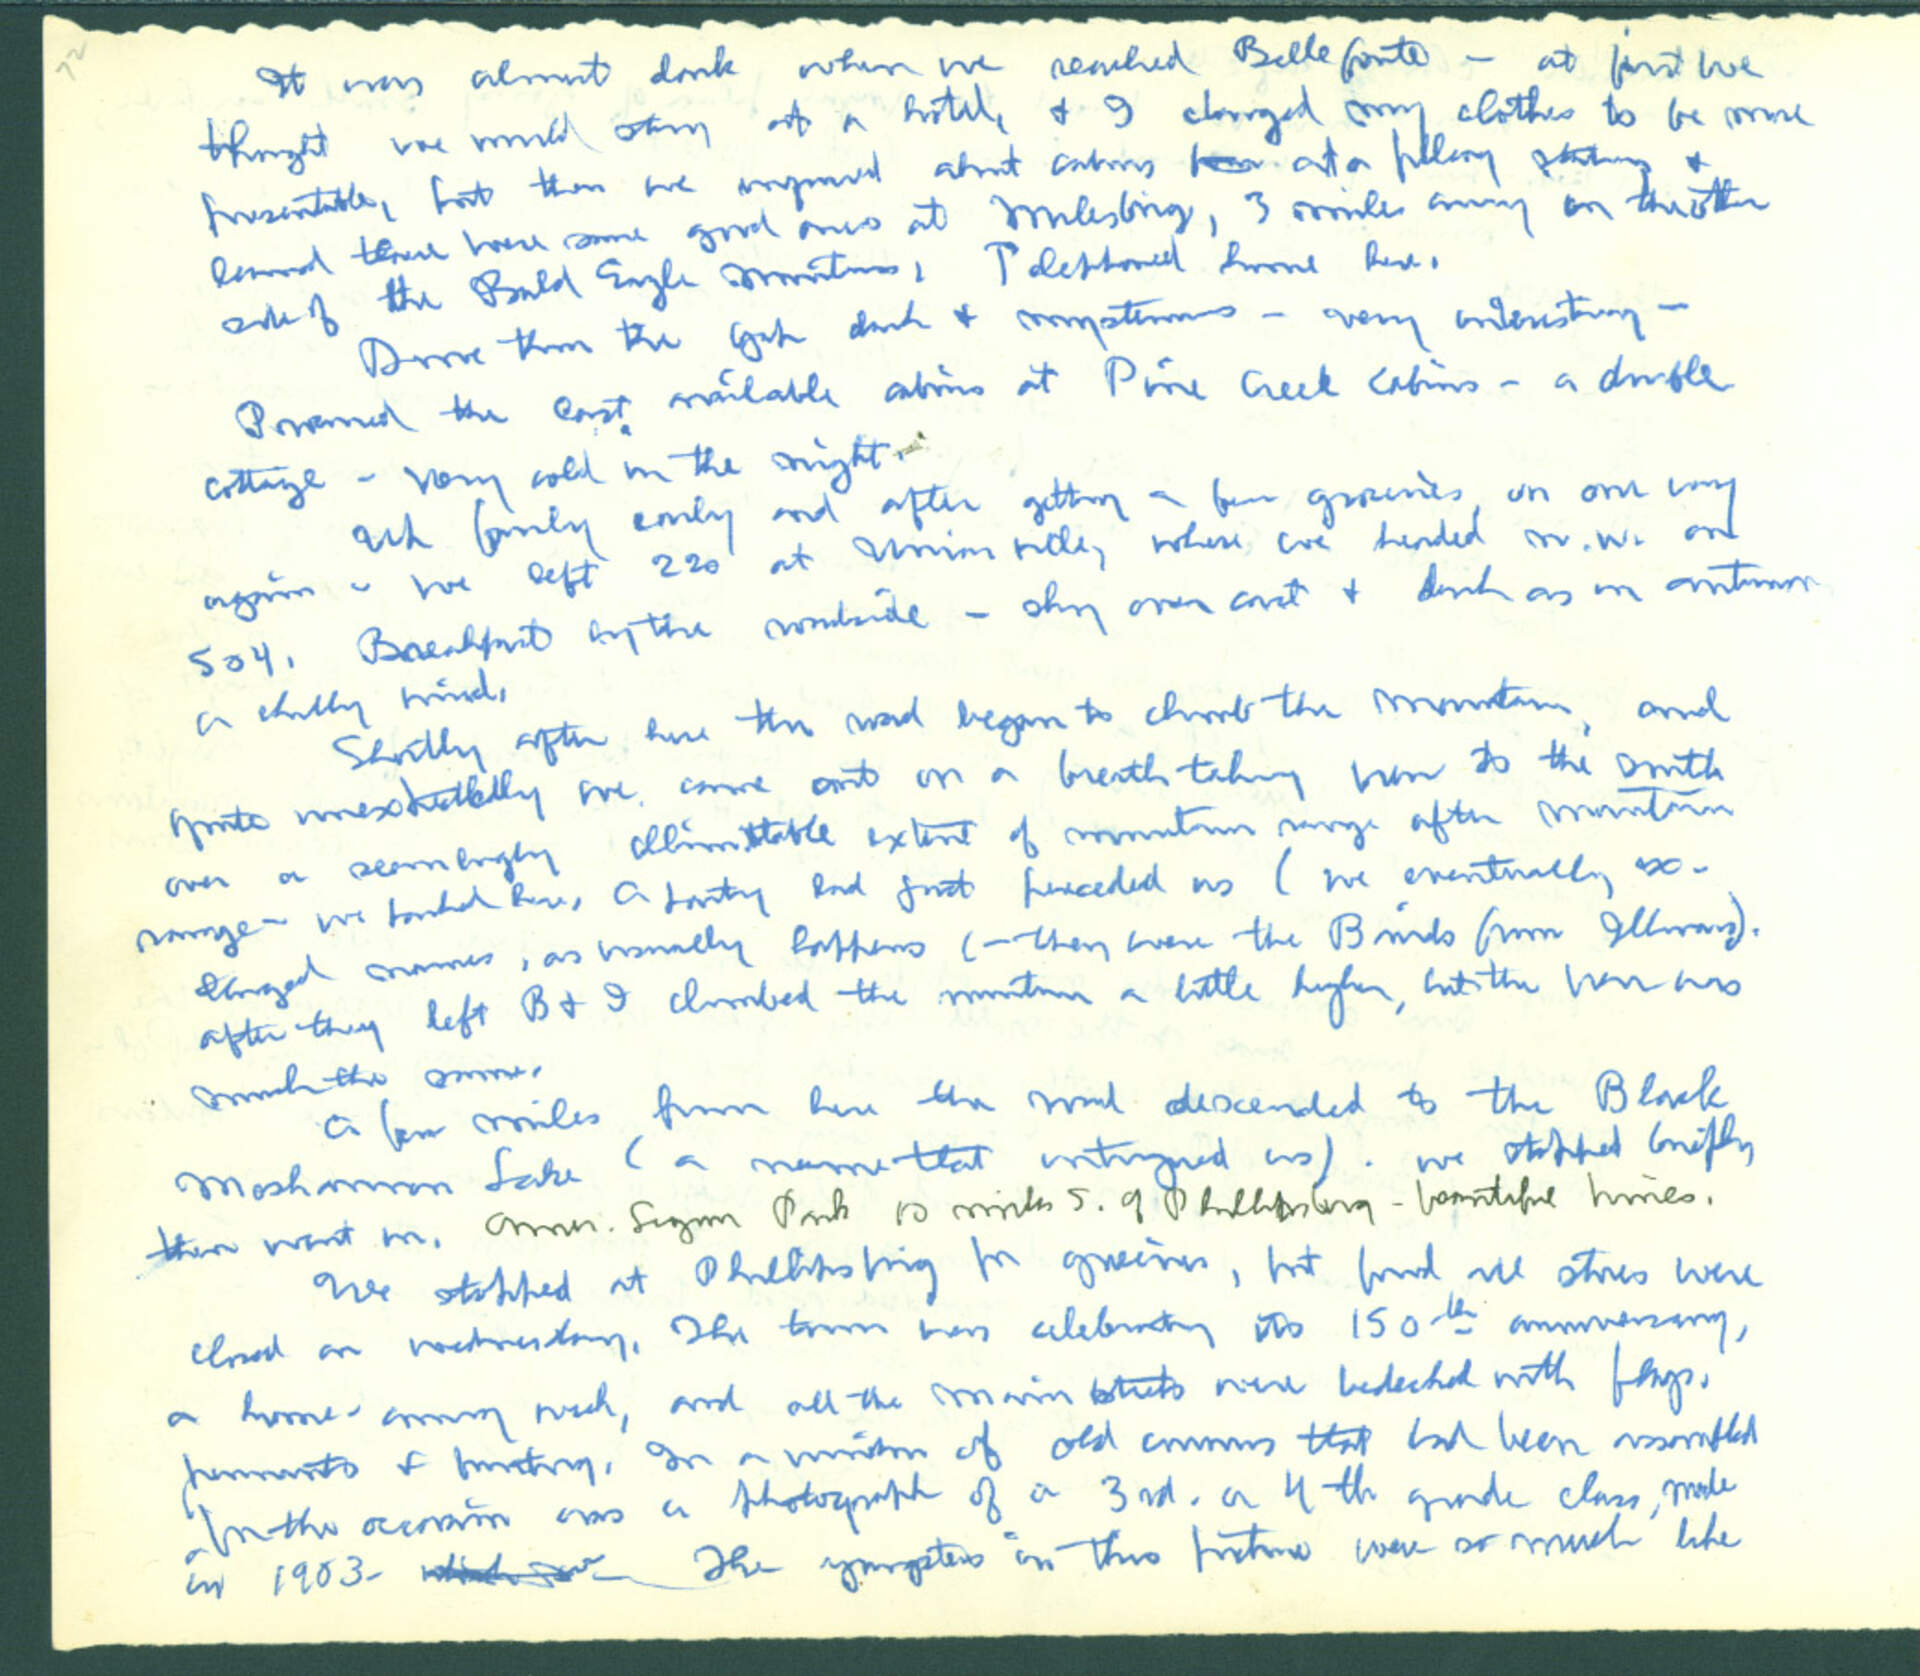 It was almost dark when we reached Bellefonte - at first we
thought we would stay at a hotel, & I changed my clothes to be more
presentable, but then we inquired about cabins at a filling station &
learned there were some good ones at Milesburg, 3 miles away on the other
side of the Bald Eagle Mountains, Telephoned home here.
Drove thru the gap dark & mysterious - very interesting -
Procured the last available cabins at Pine Creek Cabins - a double
cottage - very cold in the night.
Up fairly early and after getting a few groceries on our way
again - we left 220 at Unionville, where we headed n.w. on
504. Breakfast by the roadside - sky overcast & dark as in autumn
a chilly wind.
Shortly after here the road began to climb the mountain, and
quite unexpectedly we came out on a breathtaking view to the south
over a seemingly illimitable extent of mountain range after mountain
range - we parked here. A party had just preceded us (we eventually ex-
changed names, as usually happens (- they were the Bairds from Illinois).
After they left B & I climbed the mountain a little higher, but the view was
much the same.
A few miles from here the road descended to the Black
Moshannon Lake (a name that intrigued us). We stopped briefly
then went on. Amer. Legion Park 10 miles S. of Phillipsburg - beautiful pines.
We stopped at Phillipsburg for groceries, but found all stores were
closed on Wednesday. The town was celebrating its 150th anniversary,
a home-coming week, and all the main streets were bedecked with flags,
pennants & bunting. In a window of old cameras that had been assembled
for the occasion was a photograph of a 3rd. or 4th grade class, made
in 1903 - The youngsters in this picture were so much like